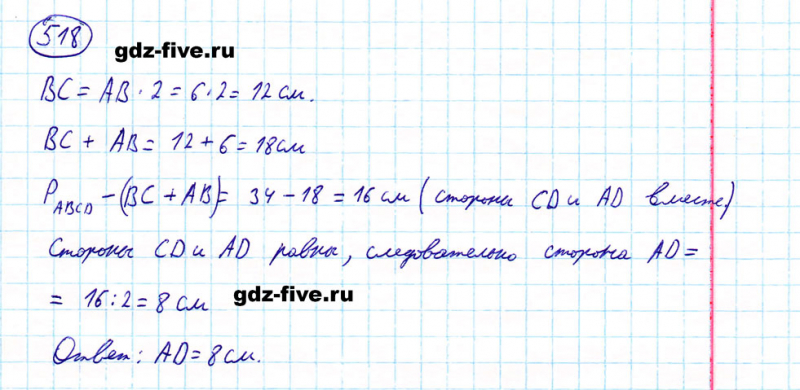 518
gdz-five.ru
BC = AB · 2 = 6 · 2 = 12 см.
BC + AB = 12 + 6 = 18 см
P ABCD - (BC + AB) = 34 - 18 = 16 см (стороны CD и AD вместе)
Стороны CD и AD равны, следовательно сторона AD =
= 16 : 2 = 8 см
gdz-five.ru
Ответ: AD = 8 см.